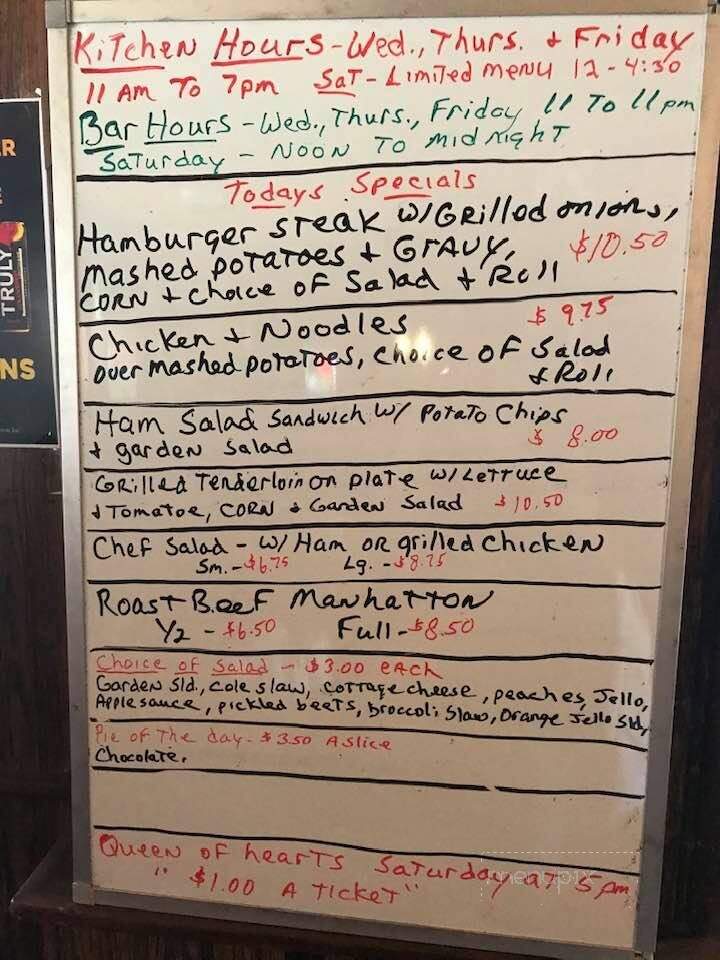 Kitchen Hours - Wed., Thurs. + Friday
11 AM To 7pm SaT - Limited menu 12 - 4:30
Bar Hours - Wed., Thurs., Friday 11 To 11 pm
Saturday - Noon To midnighT
Todays Specials
Hamburger steak w/ Grilled onions,
mashed potatoes + Gravy, $10.50
corn + choice of Salad + Roll
Chicken + Noodles $ 9.75
over mashed potatoes, choice of Salad
+ Roll
Ham Salad Sandwich w/ Potato Chips
+ garden Salad $ 8.00
Grilled Tenderloin on plate w/ Lettuce
+ Tomatoe, corn + Garden Salad $10.50
Chef Salad - w/ Ham or grilled Chicken
Sm. - $6.75 Lg. - $8.75
Roast Beef Manhatton
1/2 - $6.50 Full - $8.50
Choice of Salad - $3.00 each
Garden Sld., Cole slaw, cottage cheese, peaches, Jello,
Applesauce, pickled beets, broccoli Slaw, Orange Jello Sld,
Pie of The day - $3.50 A slice
Chocolate,
Queen of hearts Saturday at 5 pm
" $1.00 A Ticket"
TRULY
R
E
NS
menupix